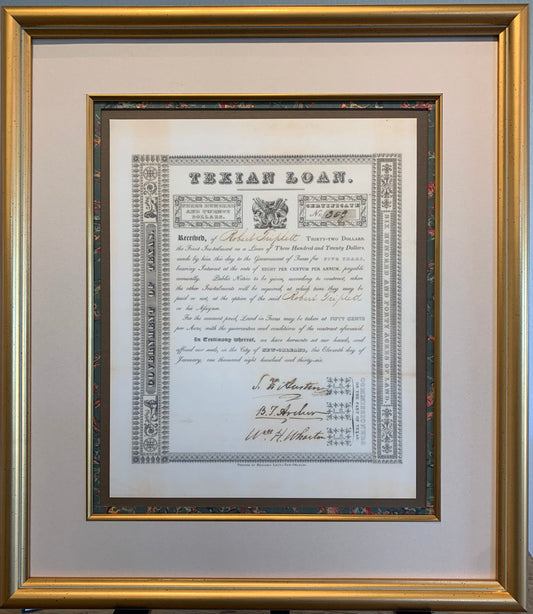 TEXIAN LOAN.
THREE HUNDRED
AND TWENTY
DOLLARS.
CERTIFICATE
No.
Received, of Robert Triplett THIRTY-TWO DOLLARS,
the First Instalment on a Loan of Three Hundred and Twenty Dollars,
made by him this day to the Government of Texas for FIVE YEARS,
bearing Interest at the rate of EIGHT PER CENTUM PER ANNUM, payable
annually. Public Notice to be given, according to contract, when
the other Instalments will be required, at which time they may be
paid or not, at the option of the said Robert Triplett
or his Assigns.
For the amount paid, Land in Texas may be taken at FIFTY CENTS
per Acre, with the guarantees and conditions of the contract aforesaid.
In Testimony whereof, we have hereunto set our hands, and
official our seals, in the City of NEW-ORLEANS, this Eleventh day of
January, one thousand eight hundred and thirty-six.
S. F. Austin
B. T. Archer
Wm H. Wharton
COMMISSIONERS
ON THE PART OF TEXAS
GOVERNMENT OF TEXAS.
SIX HUNDRED AND FORTY ACRES OF LAND.